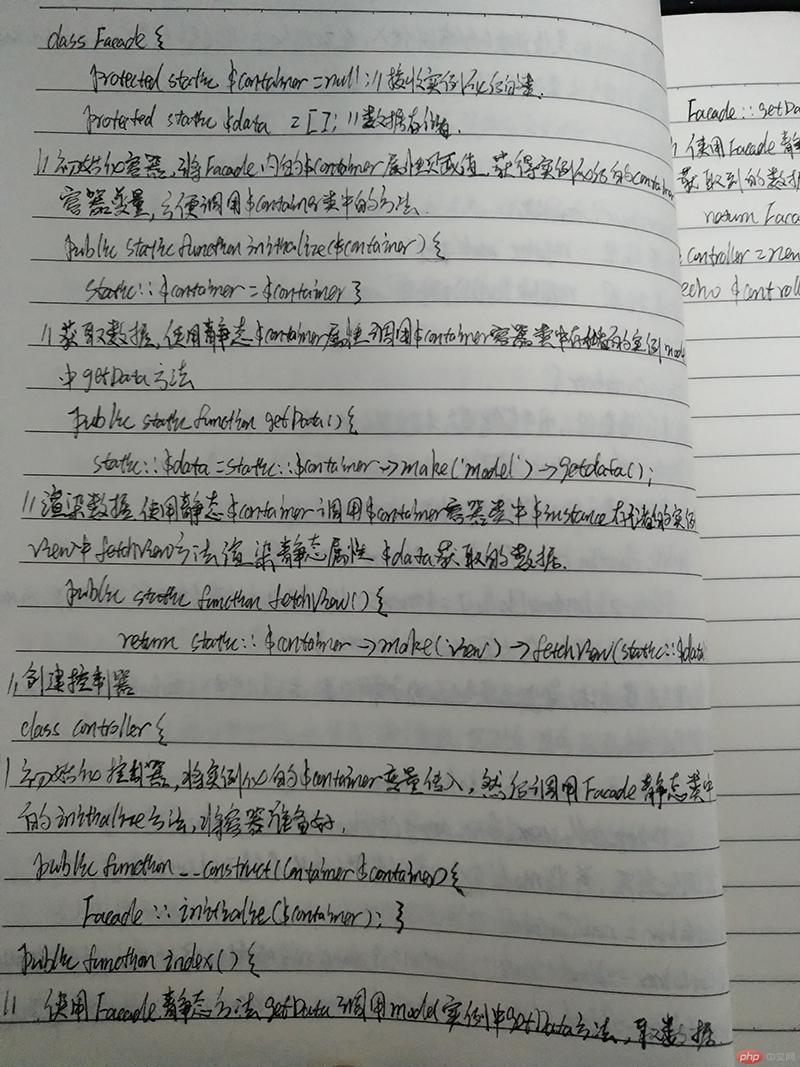 class Facade {
protected static $container = null; // 接收实例化后的类.
protected static $data = []; // 数据存储.
// 初始化容器, 将Facade内的$container属性赋值, 获得实例化后的container
容器变量, 方便调用$container类中的方法.
public static function initialize($container) {
static::$container = $container }
// 获取数据, 使用静态$container属性调用$container容器类中存储的实例model
中getData方法
public static function getData() {
static::$data = static::$container->make('model')->getdata();
// 渲染数据 使用静态$container调用$container容器类中$instance存储的实例
view中fetchView方法渲染静态属性$data获取的数据.
public static function fetchView() {
return static::$container->make('view')->fetchView(static::$data
// 创建控制器
class controller {
初始化控制器, 将实例化的$container变量传入, 然后调用Facade静态类中
的initialize方法, 将容器准备好,
public function __construct(Container $container) {
Facade::initialize($container); }
public function index() {
// 使用Facade静态方法getData调用model实例中getData方法, 取数据.
Facade::getDa
使用Facade静
获取到的数据
return Faca
controller = new
echo $controll
php 中文网